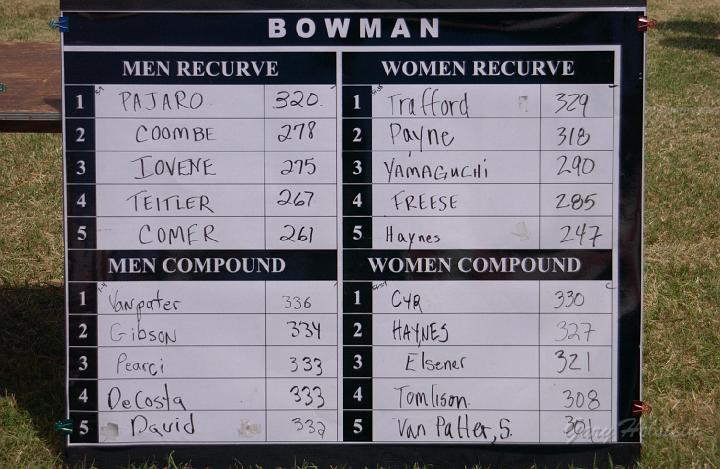 BOWMAN
MEN RECURVE
1 PAJARO 320
2 COOMBE 278
3 IOVENE 275
4 TEITLER 267
5 COMER 261
WOMEN RECURVE
1 Trafford 329
2 Payne 318
3 YAMAGUCHi 290
4 FREESE 285
5 Haynes 247
MEN COMPOUND
1 Vanpater 336
2 Gibson 334
3 Pearci 333
4 DeCosta 333
5 David 332
WOMEN COMPOUND
1 CYR 330
2 HAYNES 327
3 Elsener 321
4 Tomlison. 308
5 Van Patter, S.